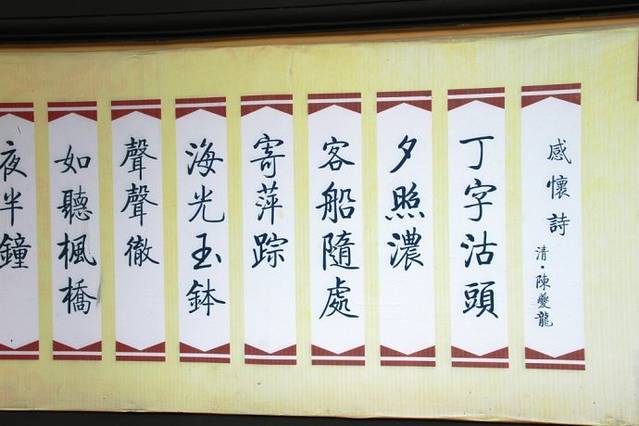 感懷詩
清·陳夔龍
丁字沽頭
夕照濃
客船隨處
寄萍踪
海光玉鉢
聲聲徹
如聽楓橋
夜半鐘